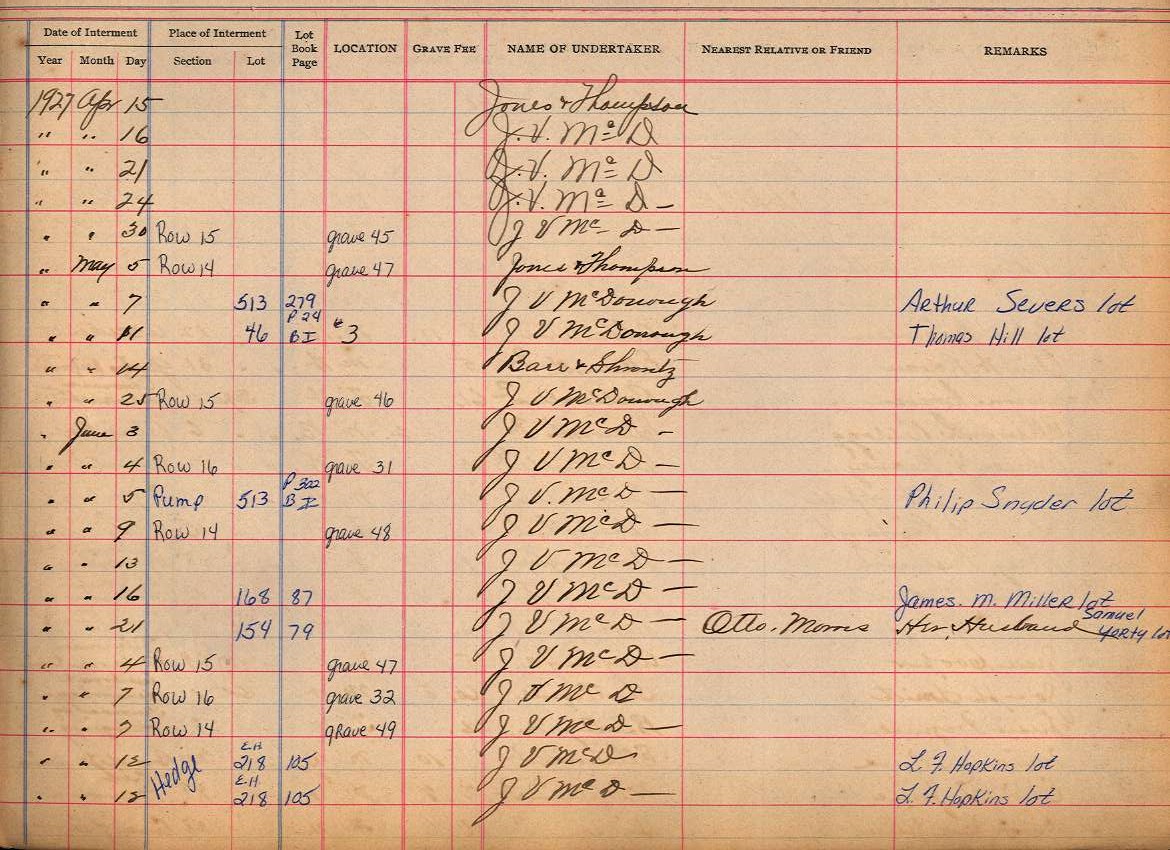 Date of Interment Place of Interment Lot Book Page LOCATION GRAVE FEE NAME OF UNDERTAKER NEAREST RELATIVE OR FRIEND REMARKS
Year Month Day Section Lot
1927 Apr 15 Jones & Thompson
" " 16 J. V. Mc D
" " 21 J. V. Mc D
" " 24 J. V. Mc D —
" " 30 Row 15 grave 45 J V Mc D —
" May 5 Row 14 grave 47 Jones & Thompson
" " 7 513 279 J V McDonough Arthur Severs lot
" " 11 46 P 24 B I #3 J V McDonough Thomas Hill lot
" " 14 Barr & Shrontz
" " 25 Row 15 grave 46 J V McDonough
" June 3 J V McD -
" " 4 Row 16 grave 31 J V McD —
" " 5 Pump 513 P 302 B I J V. McD — Philip Snyder lot
" " 9 Row 14 grave 48 J V McD —
" " 13 J V McD —
" " 16 168 87 J V McD — James. M. Miller lot
" " 21 154 79 J V McD — Otto. Morris Her. Husband Samuel Yorty lot
" " 4 Row 15 grave 47 J V McD —
" " 7 Row 16 grave 32 J V Mc D
" " 7 Row 14 grave 49 J V Mc D —
" " 12 Hedge E.H 218 105 J V McD L. F. Hopkins lot
" " 12 E.H 218 105 J V Mc D — L. F. Hopkins lot